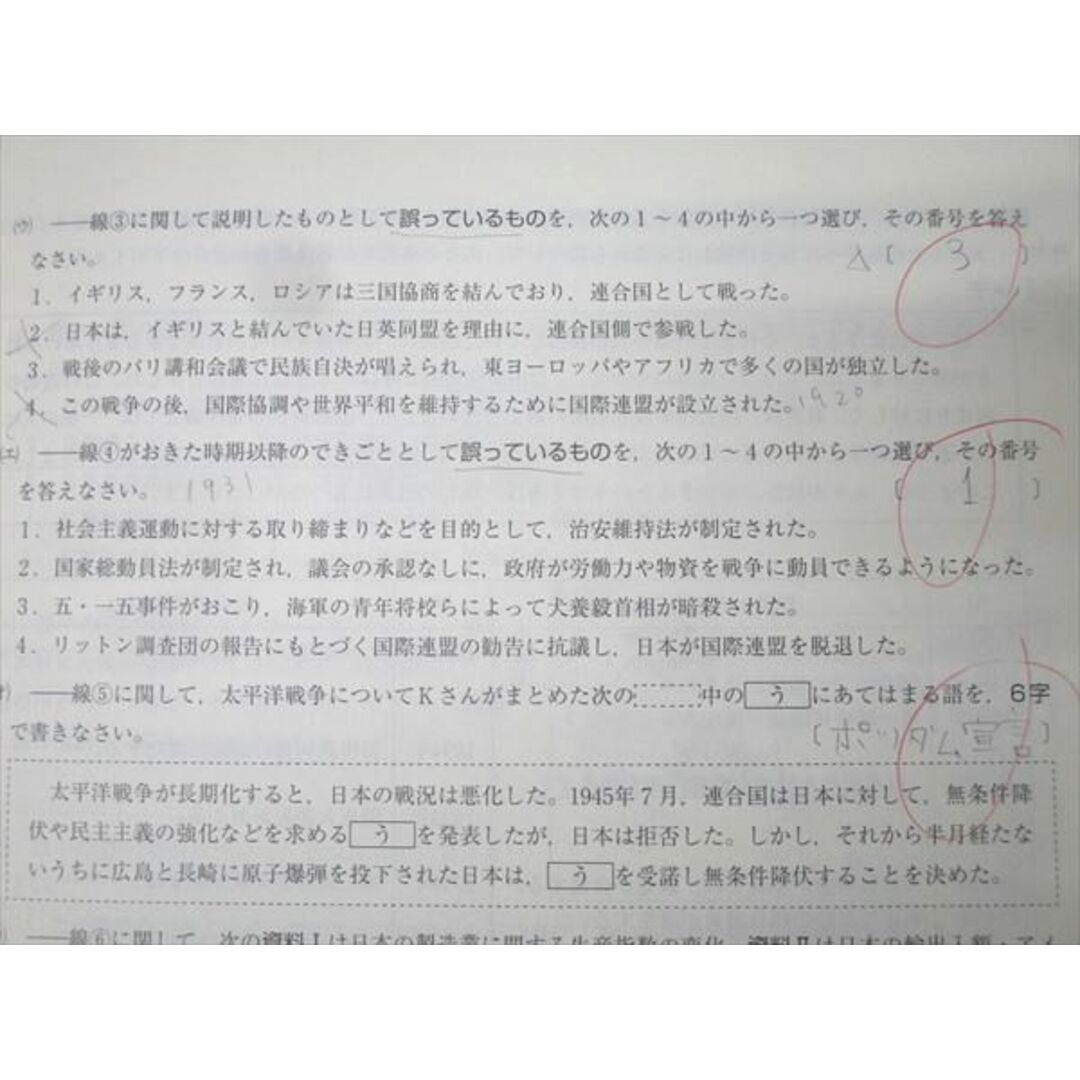 (ウ) ――線③に関して説明したものとして誤っているものを，次の1～4の中から一つ選び，その番号を答え
なさい。 △〔 3 〕
1．イギリス，フランス，ロシアは三国協商を結んでおり，連合国として戦った。
2．日本は，イギリスと結んでいた日英同盟を理由に，連合国側で参戦した。
3．戦後のパリ講和会議で民族自決が唱えられ，東ヨーロッパやアフリカで多くの国が独立した。
4．この戦争の後，国際協調や世界平和を維持するために国際連盟が設立された。1920
(エ) ――線④がおきた時期以降のできごととして誤っているものを，次の1～4の中から一つ選び，その番号
を答えなさい。 1931 〔 1 〕
1．社会主義運動に対する取り締まりなどを目的として，治安維持法が制定された。
2．国家総動員法が制定され，議会の承認なしに，政府が労働力や物資を戦争に動員できるようになった。
3．五・一五事件がおこり，海軍の青年将校らによって犬養毅首相が暗殺された。
4．リットン調査団の報告にもとづく国際連盟の勧告に抗議し，日本が国際連盟を脱退した。
オ) ――線⑤に関して，太平洋戦争についてKさんがまとめた次の 中の う にあてはまる語を，6字
で書きなさい。 〔ポツダム宣言〕
太平洋戦争が長期化すると，日本の戦況は悪化した。1945年7月，連合国は日本に対して，無条件降
伏や民主主義の強化などを求める う を発表したが，日本は拒否した。しかし，それから半月経たな
いうちに広島と長崎に原子爆弾を投下された日本は， う を受諾し無条件降伏することを決めた。
――線⑥に関して，次の資料Ⅰは日本の製造業に関する生産指数の変化，資料Ⅱは日本の輸出入額・アメ